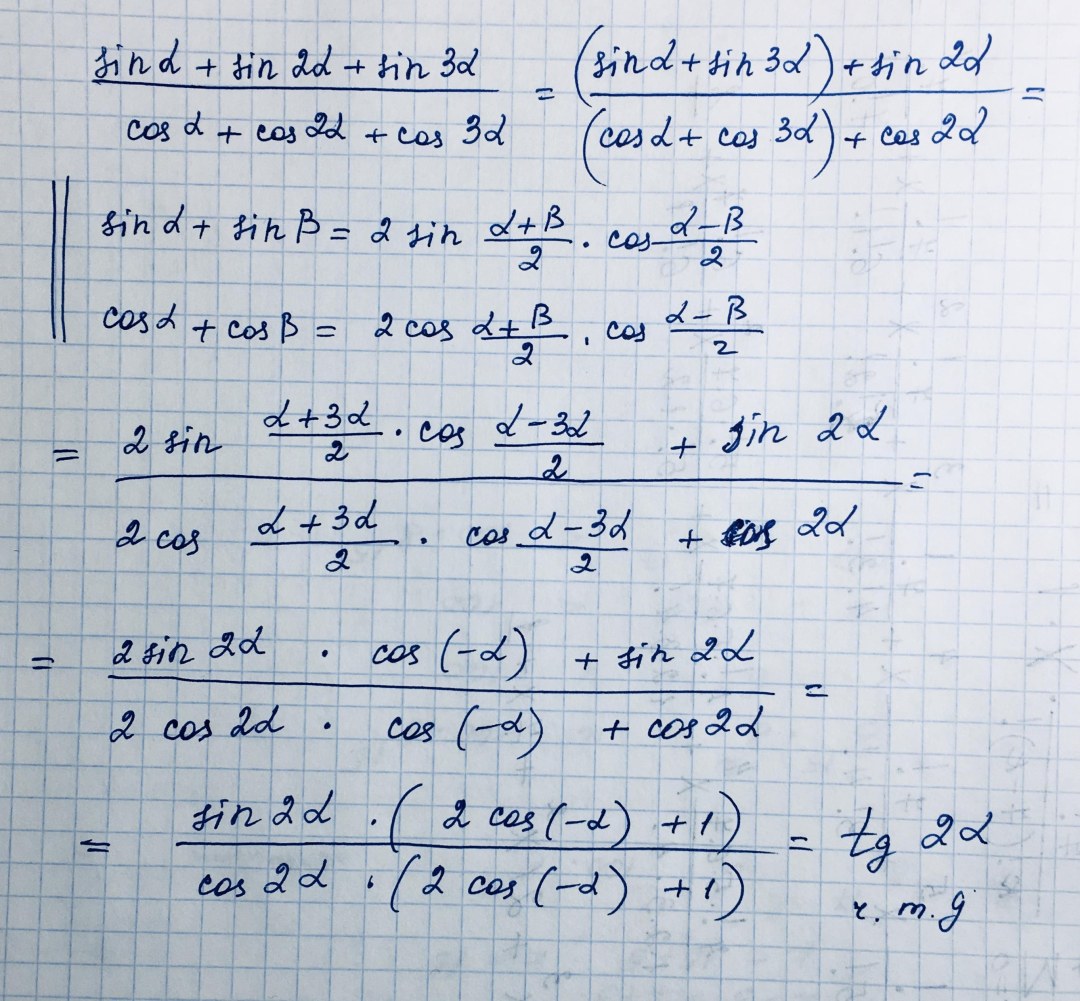 (sin α + sin 2α + sin 3α)/(cos α + cos 2α + cos 3α) = ((sin α + sin 3α) + sin 2α)/((cos α + cos 3α) + cos 2α) =
sin α + sin β = 2 sin (α+β)/2 · cos (α−β)/2
cos α + cos β = 2 cos (α+β)/2 · cos (α−β)/2
= (2 sin (α+3α)/2 · cos (α−3α)/2 + sin 2α)/(2 cos (α+3α)/2 · cos (α−3α)/2 + cos 2α) =
= (2 sin 2α · cos (−α) + sin 2α)/(2 cos 2α · cos (−α) + cos 2α) =
= (sin 2α · (2 cos (−α) + 1))/(cos 2α · (2 cos (−α) + 1)) = tg 2α
ч. т. д